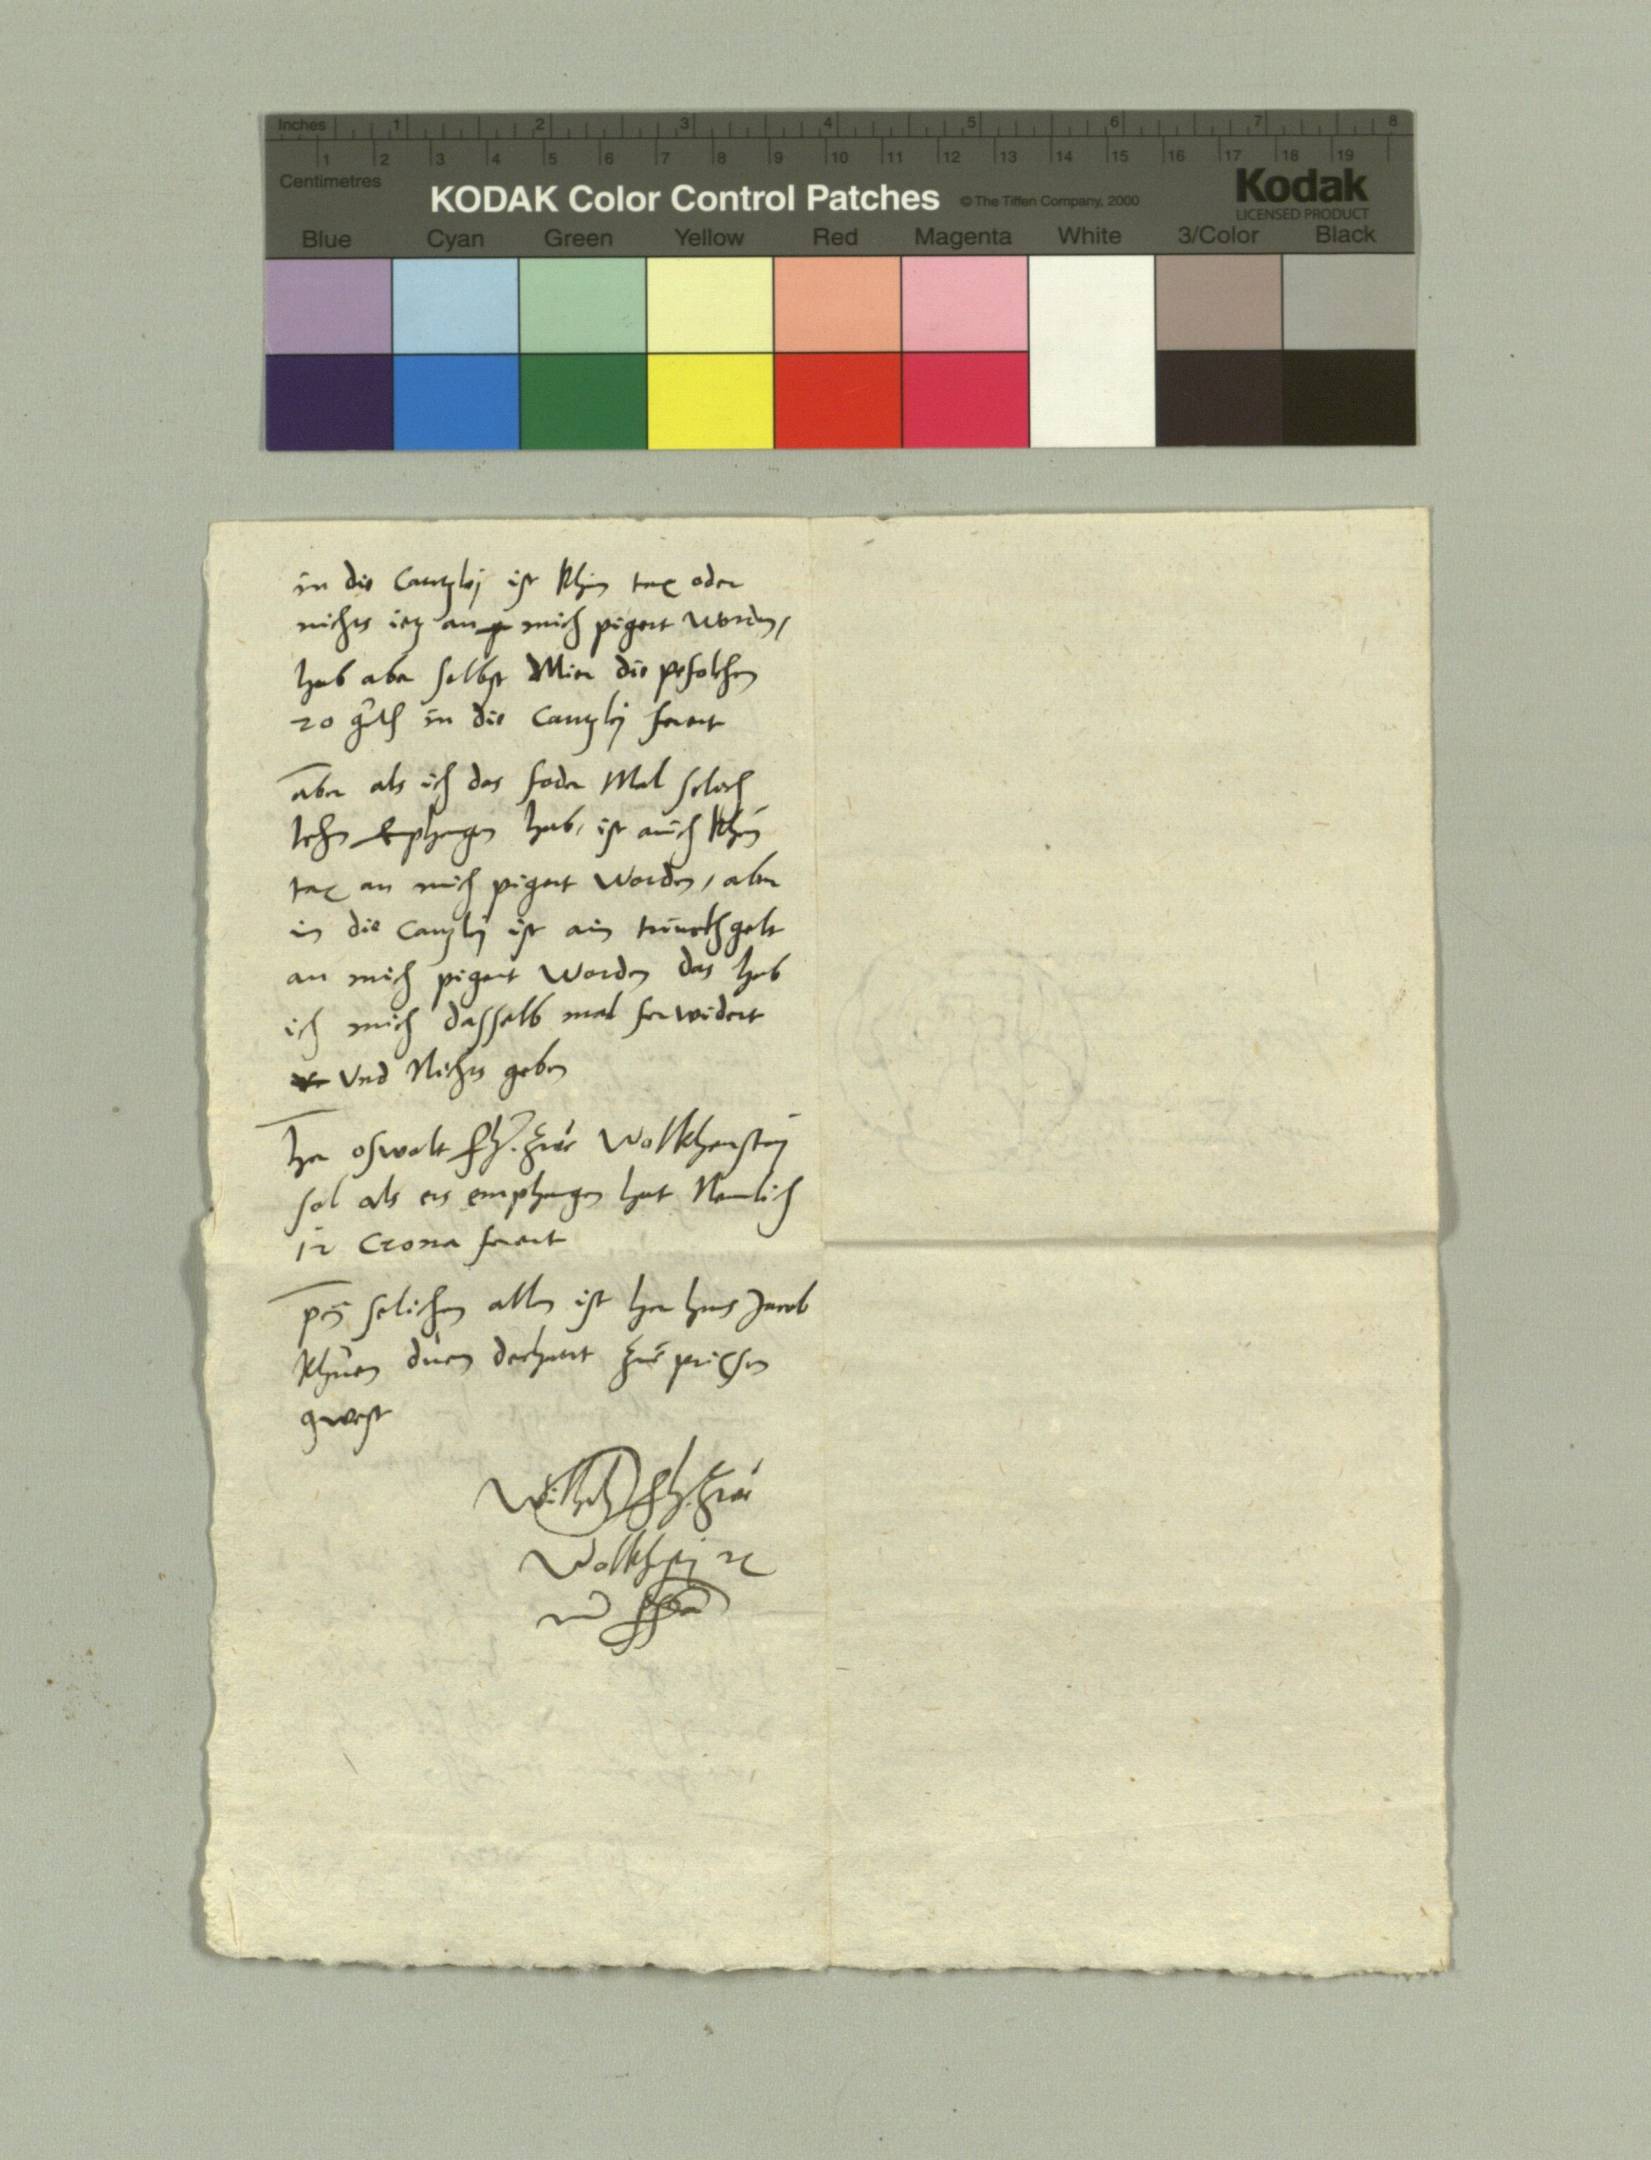 Inches 1 2 3 4 5 6 7 8
1 2 3 4 5 6 7 8 9 10 11 12 13 14 15 16 17 18 19
Centimetres
KODAK Color Control Patches © The Tiffen Company, 2000 Kodak
LICENSED PRODUCT
Blue Cyan Green Yellow Red Magenta White 3/Color Black
in die Cantzlej ist khin tax oder
nichts ietz an mich pigert worden,
hab aber selbst Mier die
20 in die Cantzlej feeert
aber als ich das foder Mal solich
lehn emphangen hab, ist auch khin
tax an mich pigert worden, aber
in die Canzlej ist ain trinckhgelt
an mich pigert worden das hab
ich mich dasselb mal ferwidert
Und Nichts geben
her oswalt fh. zue Wolkhenstain
sol als ers emphangen hat Nemlich
12 Crona fereert
pej solichem allem ist her hans Jacob
khuen duem dechant zue prichsen
gwest
Wilhelm fh. zue
Wolkhenstain